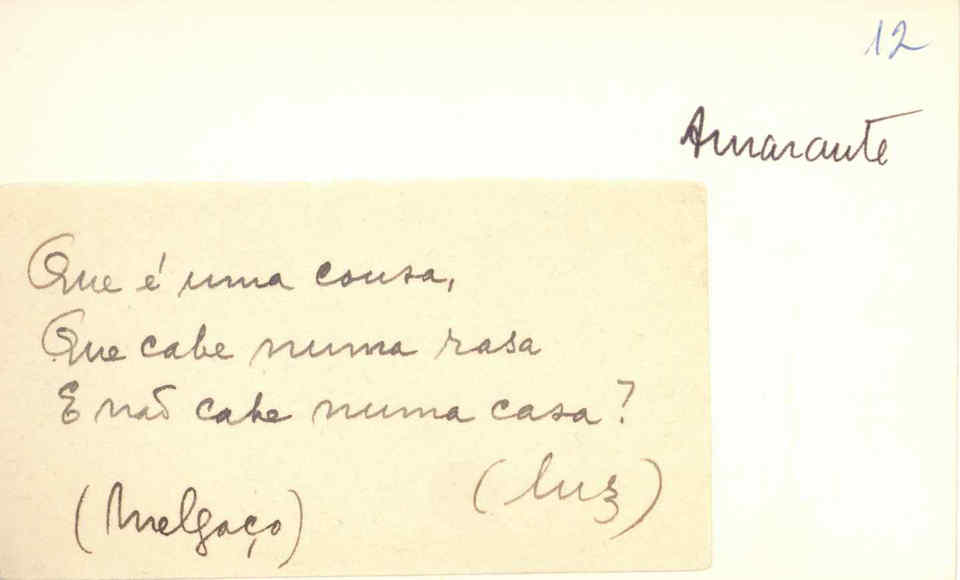 12
Amarante
Que é uma cousa,
Que cabe numa rasa
E não cabe numa casa?
(luz)
(Melgaço)